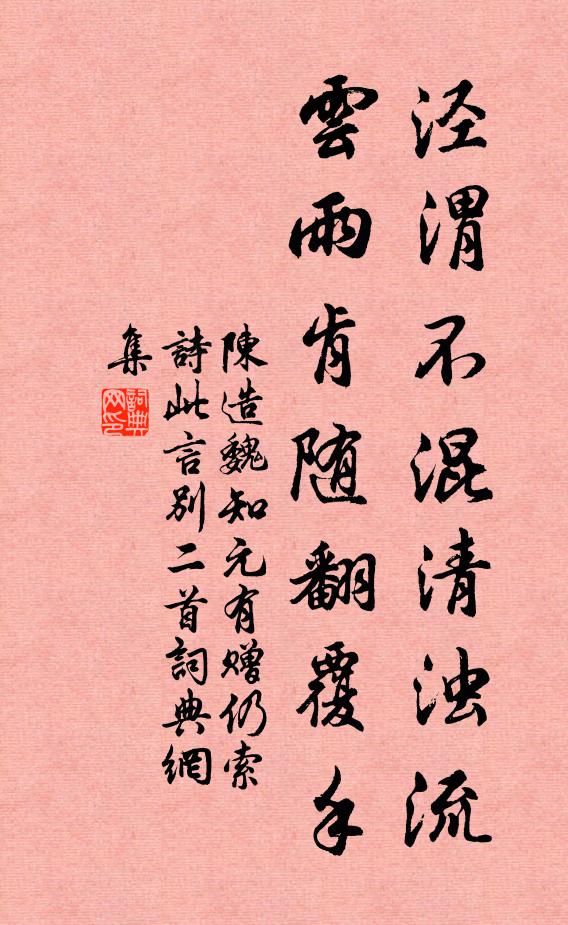 泾渭不混清浊流
雲雨肯随翻覆手
陳造魏知元有赠仍索
詩此言别二首詞典網
集
詞典网印